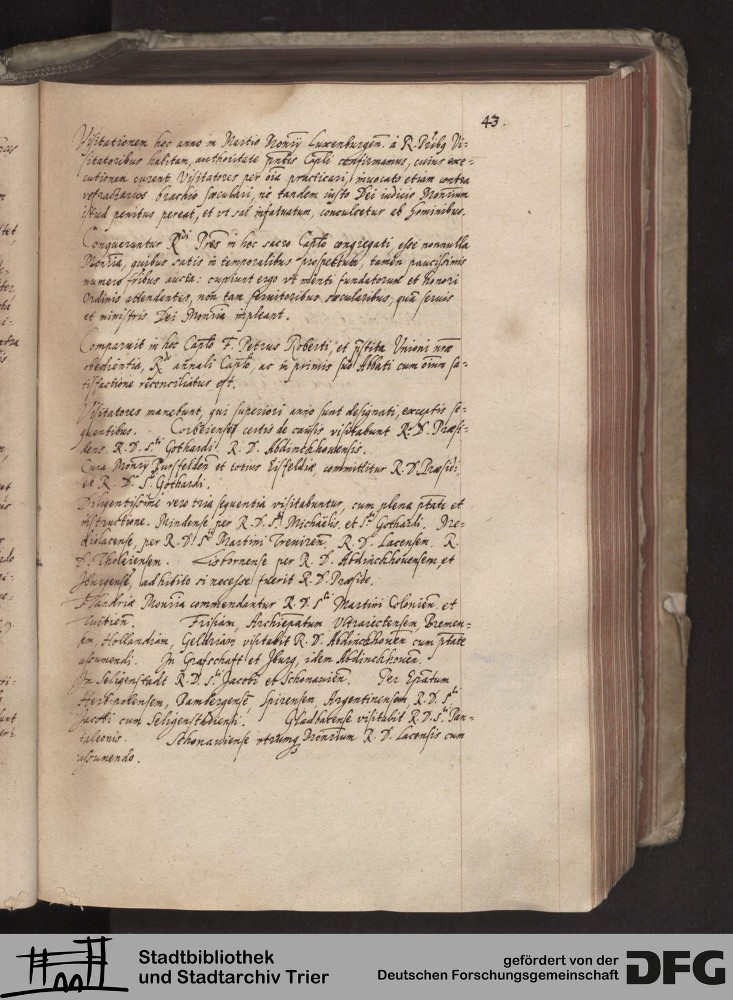 43.
Visitationem hoc anno in Martio Monrij Luxenburgen. à R. Prib9 Vi=
sitatoribus habitam, authoritate pntis Capli confirmamus, cuius exe=
cutionem curent Visitatores per oia practicari, invocato etiam contra
refractarios brachio sœculari, ne tandem iusto Dei iudicio Monrium
istud penitus pereat, et vt sal infatuatum, conculcetur ab hominibus.
Conqueruntur Rdi Pres in hoc sacro Caplo congregati, esse nonnulla
Monria, quibus satis in temporalibus prospectum, tamen paucissimis
numero fribus aucta: cupiunt ergo vt menti fundatorum et honori
Ordinis attendentes, non tam servitoribus sœcularibus, quam servis
et ministris Dei Monria impleant.
Comparuit in hoc Caplo F. Petrus Roberti, et pstita Unioni nra
obedientia, Rdo annali Caplo, ac in primis suo Abbati cum oium sa=
tisfactione reconciliatus est.
Visitatores manebunt, qui superiori anno sunt designati, exceptis se=
quentibus. Corbeienses certis de causis visitabunt R. D. Præsi=
dens R. D. Sti Gothardi, R. D. Abdinckhouensis.
Cura Monrij Hursfelden et totius Eisfeldiæ, committitur R. D. Præsidi,
et R. D. Sti Gothardi.
Diligentissimè vero tria sequentia visitabuntur, cum plena ptate et
instructione. Mindense per R. D. Sti Michaëlis, et Sti Gothardi. Me=
diolacense, per R. D. Sti Martini Treviren, R. D. Lacensem, R.
D. Tholeiensem. Lisbornense per R. D. Abdinckhouensem, et
Jburgensem, adhibito si necesse fuerit R. D. Præside.
Flandriæ Monria commendantur R. D. Sti Martini Colonien. et
Tuitien. Frisiam, Archiepatum Vltraiectensem, Bremen=
sem, Hollandiam, Geldriam visitabit R. D. Abdinckhouen cum ptate
assumendi. In Grafschaft et Jburg, idem Abdinckhouen.
In Seligenstadt R. D. Sti Jacobi et Schonavien. Per Epatum
Herbipolensem, Bambergense Spirensem, Argentinensem, R. D. Sti
Jacobi cum Seligenstediensi. Gladbatense visitabit R. D. S. Pan=
taleonis. Schonaviense utrumq Monrium R. D. Lacensis cum
assumendo.
Stadtbibliothek
und Stadtarchiv Trier
gefördert von der
Deutschen Forschungsgemeinschaft
DFG